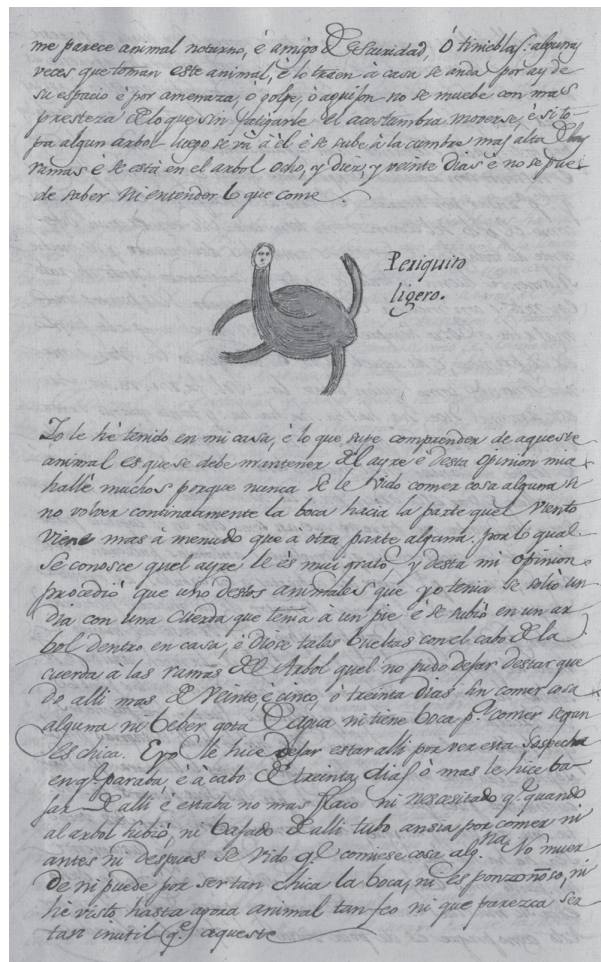 me parece animal noturno, é amigo de escuridad, ó tinieblas: algunas
veces que toman este animal, é lo traen à casa se anda por ay de
su espacio é por amenaza, o golpe, ò aguijon no se muebe con mas
presteza de lo que sin fatigarle el acostumbra moverse, é si to-
pa algun arbol luego se và à èl è se sube à la cumbre mas alta de las
ramas é se està en el arbol ocho, y diez, y veinte dias é no se pue-
de saber ni entender lo que come.
Periquito
ligero.
Yo le hè tenido en mi casa, é lo que supe comprender de aqueste
animal es que se debe mantener del ayre é desta opinion mia
hallè muchos porque nunca se le vido comer cosa alguna si
no volver continuatamente la boca hacia la parte quel viento
viene mas à menudo que à otra parte alguna. por lo qual
se conosce quel ayre le ès mui grato, y desta mi opinion
procediò que uno destos animales que yo tenia se soliò un
dia con una cuerda que tenia à un pie é se subiò en un ar
bol dentro en casa, é diose tales bueltas con el cabo de la
cuerda à las ramas del Arbol quel no pudo dejar destar que
do alli mas de veinte, è cinco, ò treinta dias sin comer cosa
alguna ni beber gota de agua ni tiene boca pa. comer segun
es chica. Eyo le hice dejar estar alli por ver esta sospecha
en q. paraba, é a cabo de treinta dias ò mas le hice ba-
jar de alli é estaba no mas flaco ni necesitado q. quando
al arbol subiò, ni bajado de alli tubo ansia por comer ni
antes ni despues se vido q. comiese cosa alguna No muer
de ni puede por ser tan chica la boca, ni es ponzoñoso, ni
hè visto hasta agora animal tan feo ni que parezca ser
tan inutil (qe.) aqueste